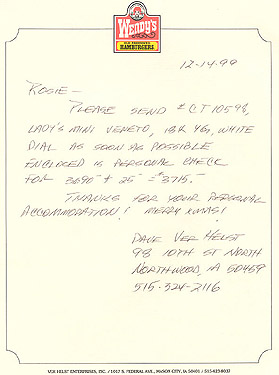 WENDY'S
OLD FASHIONED
HAMBURGERS
12-14-99
ROSIE -
PLEASE SEND # CT10598,
LADY'S MINI VENETO, 18K YG, WHITE
DIAL AS SOON AS POSSIBLE
ENCLOSED IS PERSONAL CHECK
FOR 3690 + 25 = $3715.-
THANKS FOR YOUR PERSONAL
ACCOMMODATION! MERRY XMAS!
DAVE VER HELST
98 10TH ST NORTH
NORTHWOOD, IA 50459
515-324-2116
VER HELST ENTERPRISES, INC. / 1017 S. FEDERAL AVE., MASON CITY, IA 50401 / 515-423-8037